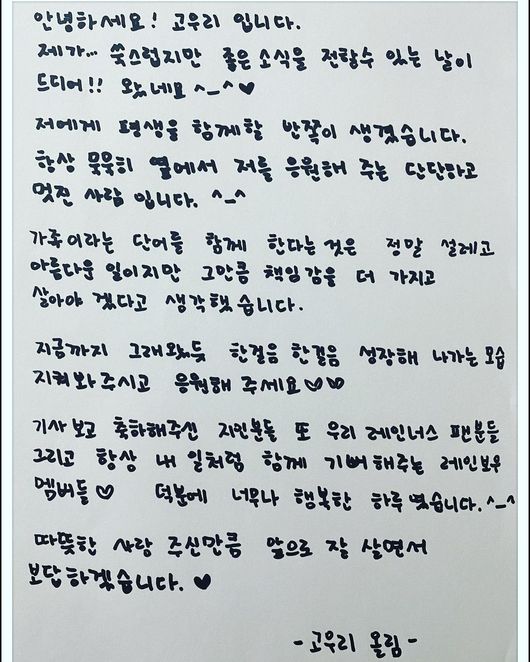 안녕하세요! 고우리 입니다.
제가... 쑥스럽지만 좋은 소식을 전할수 있는 날이
드디어!! 왔네요 ^_^ ♥
저에게 평생을 함께할 반쪽이 생겼습니다.
항상 묵묵히 옆에서 저를 응원해 주는 단단하고
멋진 사람 입니다. ^_^
가족이라는 단어를 함께 한다는것은 정말 설레고
아름다운 일이지만 그만큼 책임감을 더 가지고
살아야 겠다고 생각했습니다.
지금까지 그래왔듯 한걸음 한걸음 성장해 나가는 모습
지켜봐주시고 응원해 주세요♡♡
기사 보고 축하해주신 지인분들 또 우리 레인너스 팬분들
그리고 항상 내 일처럼 함께 기뻐해주는 레인보우
멤버들♡ 덕분에 너무나 행복한 하루였습니다. ^_^
따뜻한 사랑 주신만큼 앞으로 잘 살면서
보답하겠습니다. ♥
- 고우리 올림 -